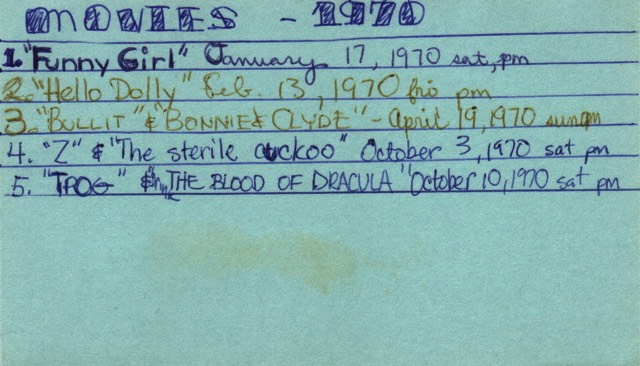 MOVIES - 1970
1. "Funny Girl" January 17, 1970 sat, pm
2. "Hello Dolly" Feb. 13, 1970 fri pm
3. "BULLIT" & "BONNIE & CLYDE" - April 19, 1970 sun pm
4. "Z" & "The sterile cuckoo" October 3, 1970 sat pm
5. "TROG" & "THE BLOOD OF DRACULA" October 10, 1970 sat pm